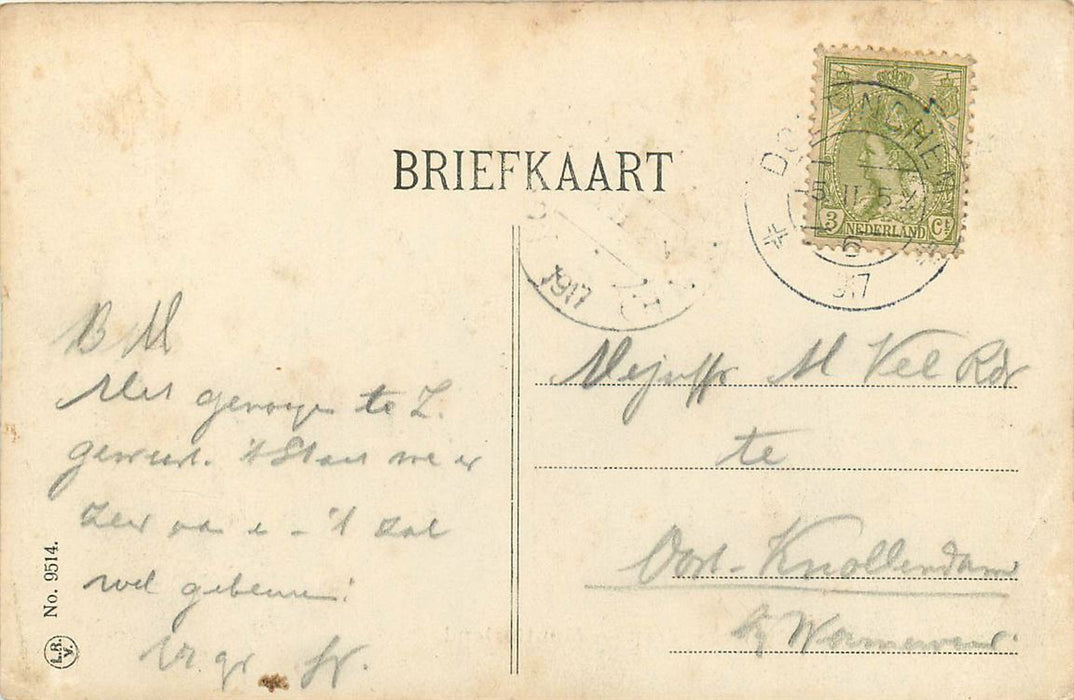 BRIEFKAART
3 NEDERLAND Ct
6
17
1917
B M
Met genoegen te Z.
geweest. 't Staat me er
zeer
't zal
wel gebeuren!
Vr. gr. W.
Mejuffr M Vel Rdr
te
Oost-Knollendam
bij Wormerveer.
No. 9514.
L.R.
V.